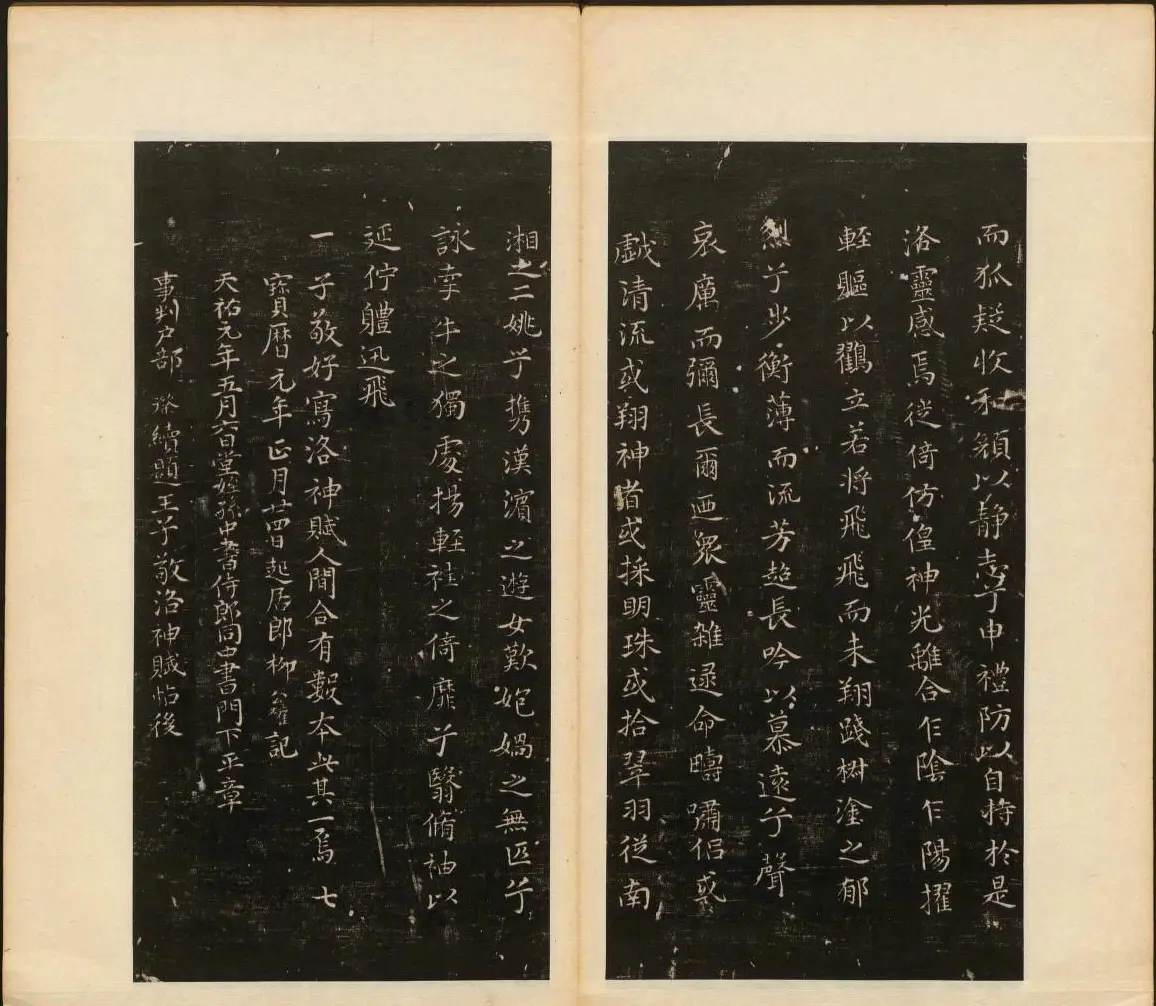 而狐疑收和顏以靜志兮申禮防以自持於是
洛靈感焉徙倚仿偟神光離合乍陰乍陽擢
輕軀以鸖立若將飛飛而未翔踐樹塗之郁
烈兮步衡薄而流芳超長吟以慕遠兮聲
哀厲而彌長爾迺眾靈雜遝命疇嘯侶或
戱清流或翔神渚或採明珠或拾翠羽從南
湘之二姚兮攜漢濱之遊女歎匏媧之無匹兮
詠牽牛之獨處揚輕袿之倚靡兮翳脩袖以
延佇軆迅飛
一子敬好寫洛神賦人間合有數本此其一焉七
寶曆元年正月廿四日起居郎柳公權記
天祐元年五月六日堂姪孫中書侍郎同中書門下平章
事判戶部璨續題王子敬洛神賦帖後